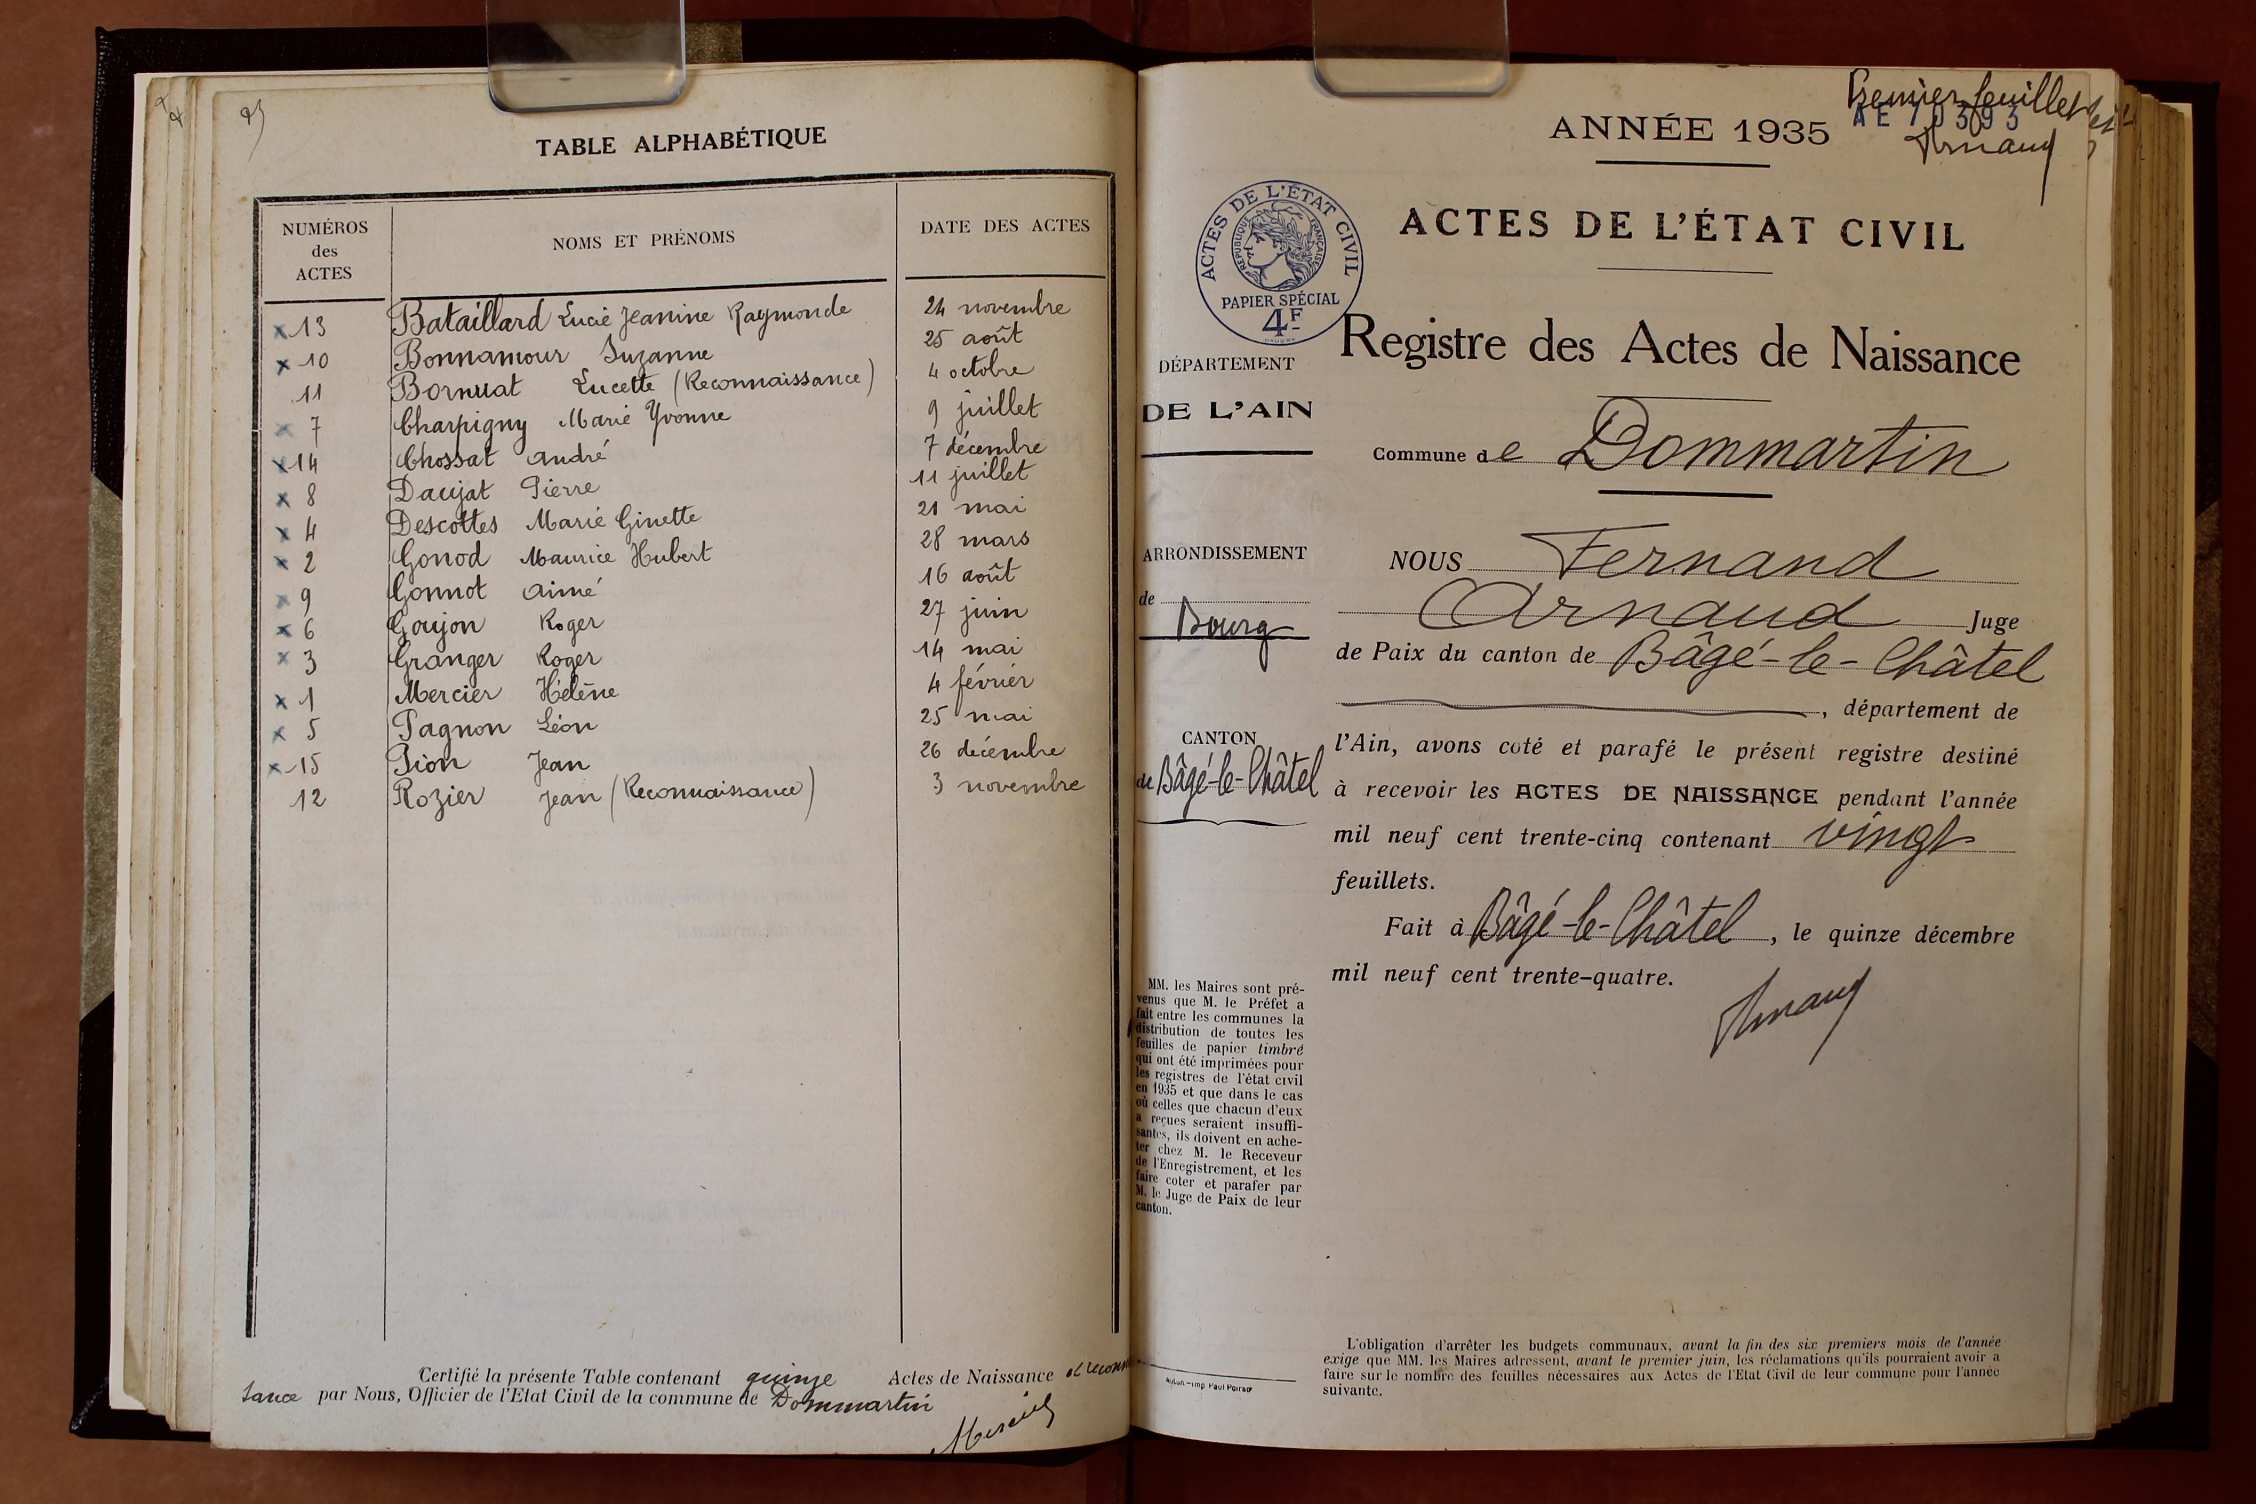 TABLE ALPHABÉTIQUE
NUMÉROS
des
ACTES
NOMS ET PRÉNOMS
DATE DES ACTES
x 13 Bataillard Lucie Jeanine Raymonde 24 novembre
x 10 Bonnamour Suzanne 25 août
11 Bornuat Lucette (Reconnaissance) 4 octobre
x 7 Charpigny Marie Yvonne 9 juillet
x 14 Chossat André 7 décembre
x 8 Daujat Pierre 11 juillet
x 4 Descottes Marie Ginette 21 mai
x 2 Gonod Maurice Hubert 28 mars
x 9 Gonnot Aimé 16 août
x 6 Goujon Roger 27 juin
x 3 Granger Roger 14 mai
x 1 Mercier Hélène 4 février
x 5 Pagnon Léon 25 mai
x 15 Pion Jean 26 décembre
12 Rozier Jean (Reconnaissance) 3 novembre
Certifié la présente Table contenant quinze Actes de Naissance et reconn
sance par Nous, Officier de l'Etat Civil de la commune de Dommartin
Premier feuillet
ANNÉE 1935
Arnaud
ACTES DE L'ÉTAT CIVIL
RÉPUBLIQUE FRANÇAISE
PAPIER SPÉCIAL
4F
ACTES DE L'ÉTAT CIVIL
Registre des Actes de Naissance
DÉPARTEMENT
DE L'AIN
Commune de Dommartin
ARRONDISSEMENT
de
Bourg
CANTON
de Bâgé-le-Châtel
NOUS Fernand
Arnaud Juge
de Paix du canton de Bâgé-le-Châtel
, département de
l'Ain, avons coté et parafé le présent registre destiné
à recevoir les ACTES DE NAISSANCE pendant l'année
mil neuf cent trente-cinq contenant vingt
feuillets.
Fait à Bâgé-le-Châtel, le quinze décembre
mil neuf cent trente-quatre.
Arnaud
MM. les Maires sont pré-
venus que M. le Préfet a
fait entre les communes la
distribution de toutes les
feuilles de papier timbré
qui ont été imprimées pour
les registres de l'état civil
en 1935 et que dans le cas
où celles que chacun d'eux
a reçues seraient insuffi-
santes, ils doivent en ache-
ter chez M. le Receveur
de l'Enregistrement, et les
faire coter et parafer par
M. le Juge de Paix de leur
canton.
L'obligation d'arrêter les budgets communaux, avant la fin des six premiers mois de l'année
exige que MM. les Maires adressent, avant le premier juin, les réclamations qu'ils pourraient avoir a
faire sur le nombre des feuilles nécessaires aux Actes de l'Etat Civil de leur commune pour l'année
suivante.